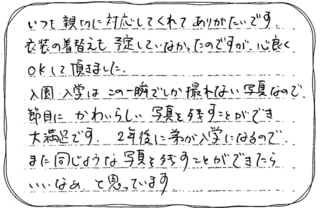 いつも親切に対応してくれてありがたいです。
衣装の着替えも予定していなかったのですが、心良く
OKして頂きました。
入園・入学はこの一瞬でしか撮れない写真なので、
節目にかわいらしい写真を残すことができ
大満足です。2年後に弟が入学になるので
また同じような写真を残すことができたら
いいなぁと思っています